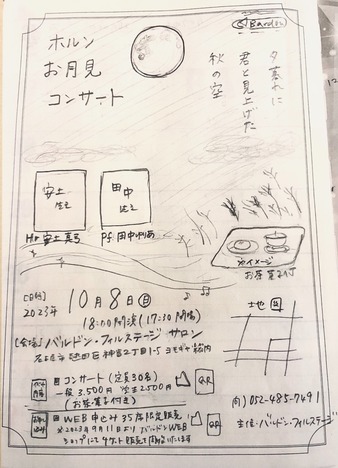 Bardon
ホルン
お月見
コンサート
夕暮れに
君と見上げた
秋の空
安土
先生
田中
先生
Hr 安土真弓
Pf 田中
※イメージ
お茶菓子付
[日時]
2023年 10月8日(日)
18:00開演(17:30開場)
[会場] バルドン・フィルステージ サロン
名古屋市熱田区神宮2丁目1-5
地図
コンサート(定員30名)
一般 3,500円 2,500円
お茶・菓子付き
QR
WEB申し込み35席限定販売
※2023年9月11日より バルドンWEB
ショップにてチケット販売を開始いたします
QR
問) 052-485-7491
主催・バルドン・フィルステージ